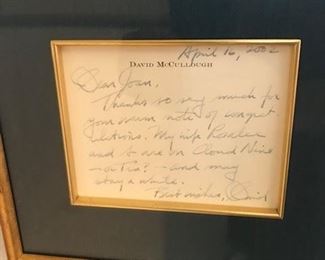 April 16, 2002
DAVID MCCULLOUGH
Dear Joan,
Thanks so very much for
your warm note of congrat
ulations. My wife Rosalee
and I are on Cloud Nine
— and may
stay a while.
Best wishes, David